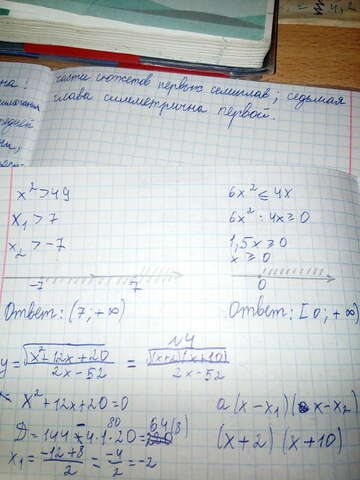 на: части сюжетов первых семи глав; седьмая
глава симметрична первой.
x² > 49
x₁ > 7
x₂ > -7
-7 7
Ответ: (7; +∞)
6x² ≤ 4x
6x² - 4x ≥ 0
1,5x ≥ 0
x ≥ 0
0
Ответ: [0; +∞)
№4
y = √(x²+12x+20) / (2x-52) = √((x+2)(x+10)) / (2x-52)
x²+12x+20=0
D = 144 - 4·1·20 = 64(8)
80
x₁ = (-12+8)/2 = -4/2 = -2
a(x-x₁)(x-x₂)
(x+2)(x+10)